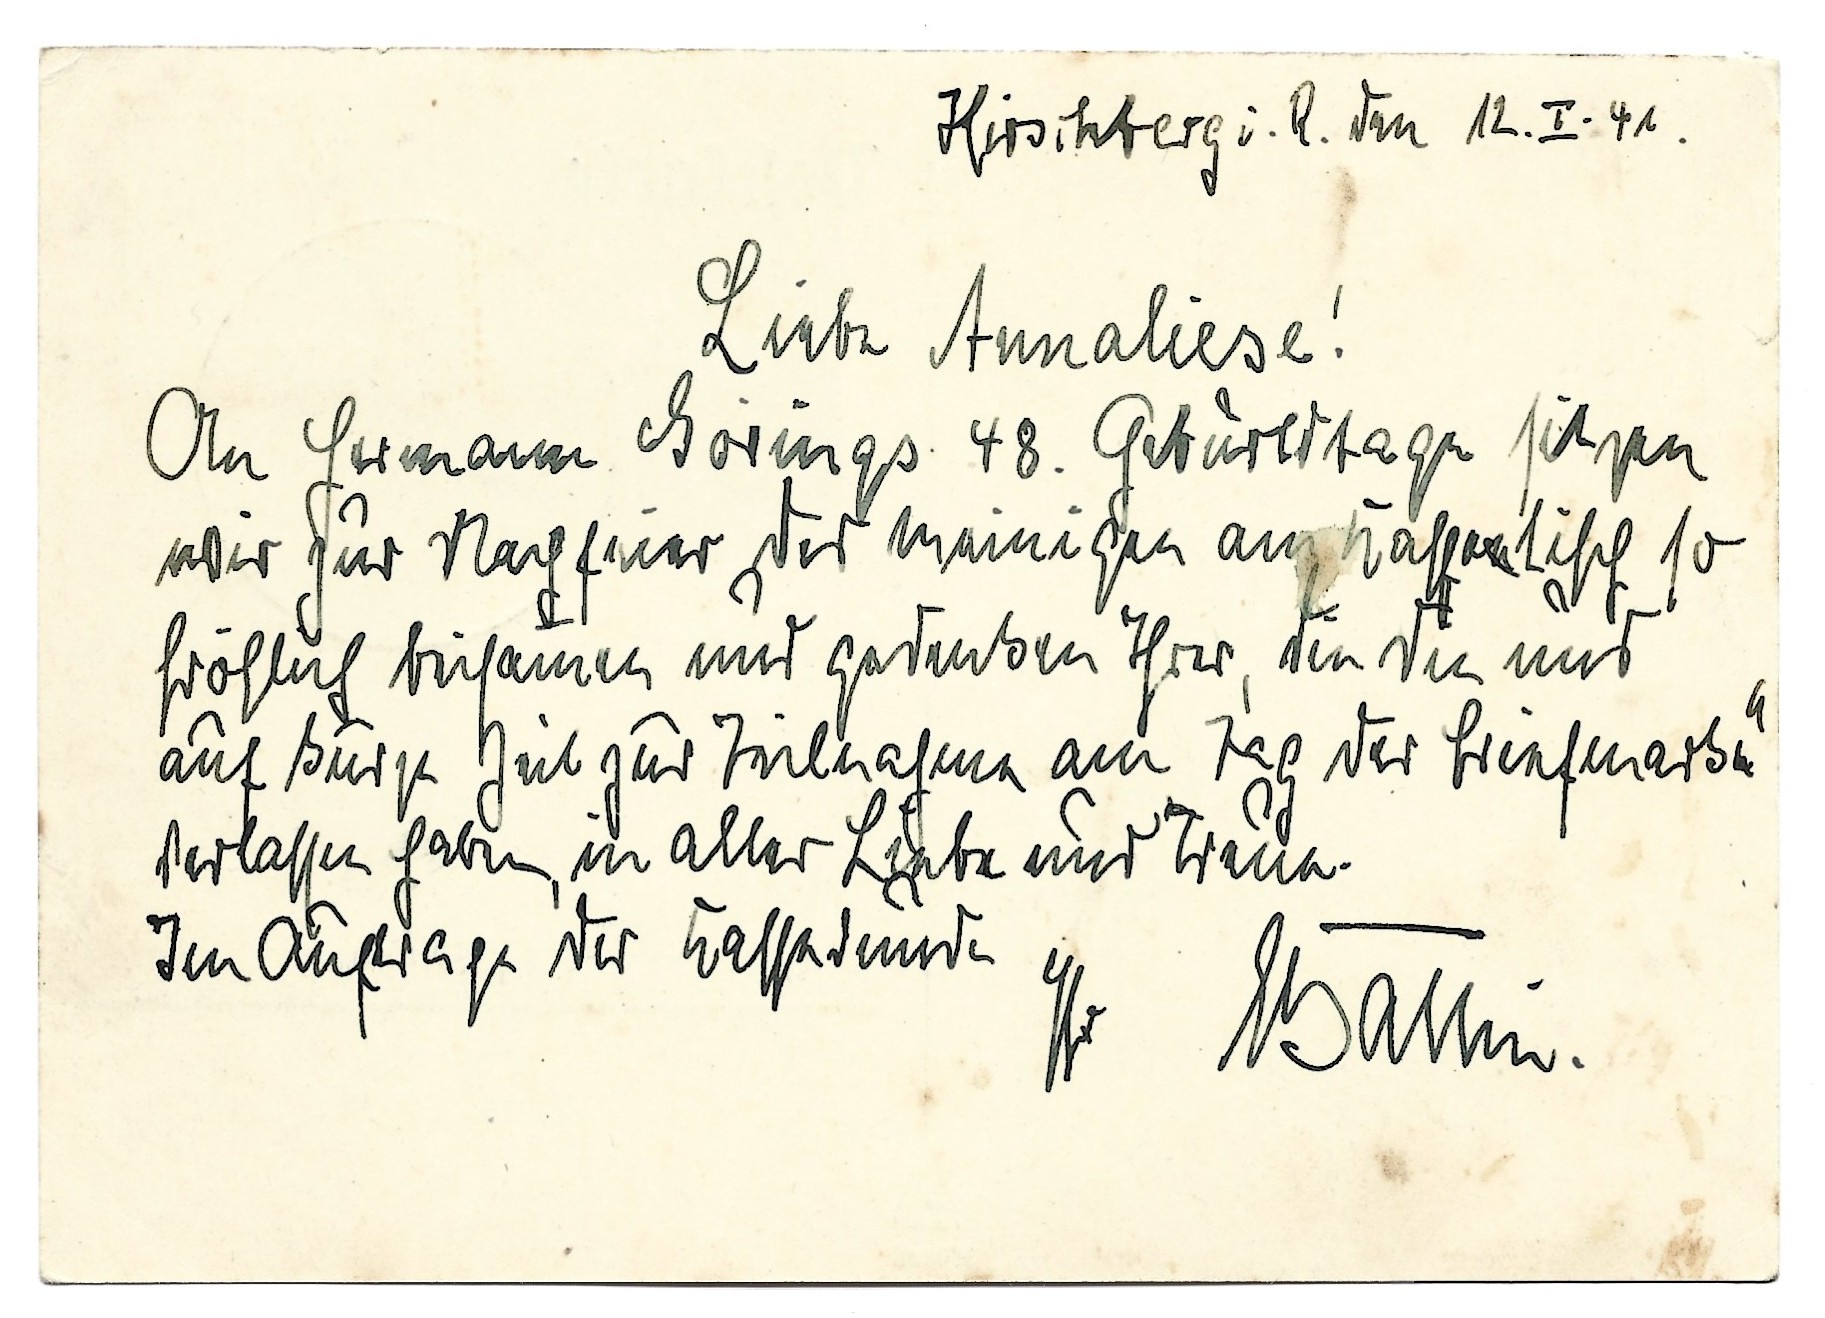 Hirschberg i. R. den 12. I. 41.
Liebe Annaliese!
An Hermann Görings 48. Geburtstage sitzen
wir zur Nachfeier des meinigen am Kaffeetisch so
fröhlich beisamen und gedenken Ihrer, die Sie uns
auf kurze Zeit zur Teilnahme am Tag der Briefmarke"
verlassen haben, in aller Liebe und Treue.
Im Auftrage der Kaffeerunde
Ihr